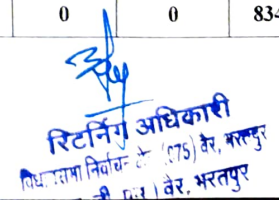 0 0 834
रिटर्निंग अधिकारी
विधानसभा निर्वाचन (075) वैर, भरतपुर
वैर, भरतपुर